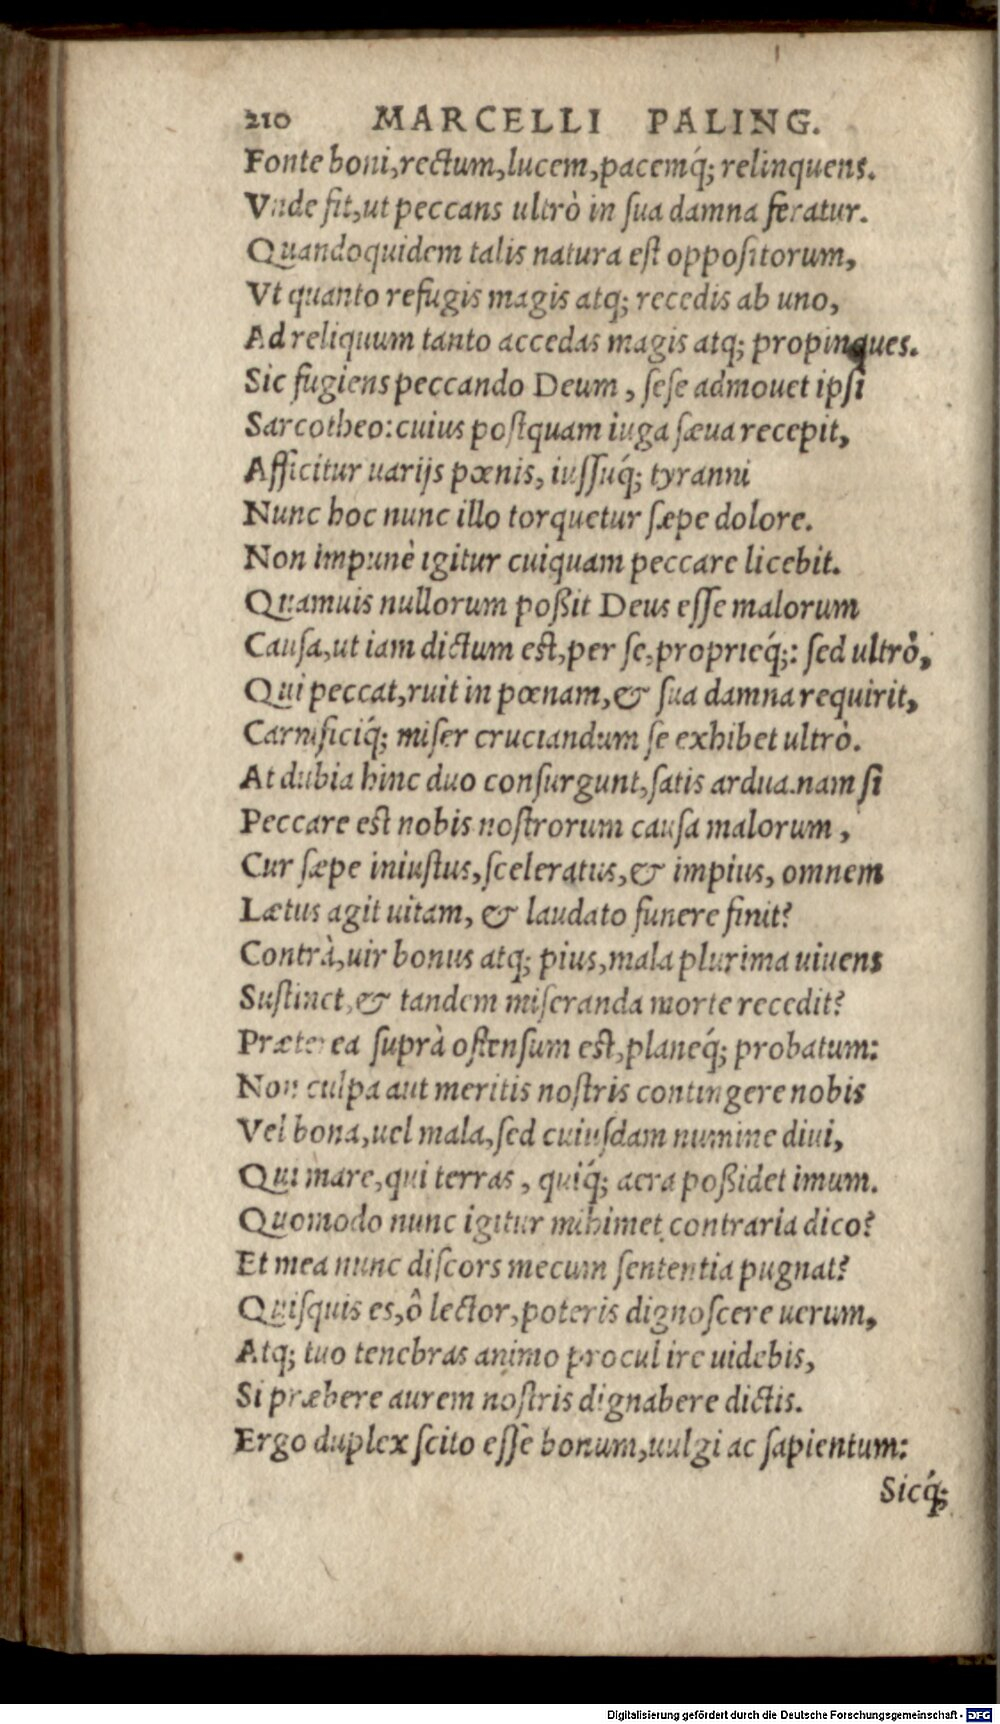 210 MARCELLI PALING.
Fonte boni, rectum, lucem, pacemq́; relinquens.
Vnde fit, ut peccans ultrò in ſua damna feratur.
Quandoquidem talis natura eſt oppoſitorum,
Vt quanto refugis magis atq; recedis ab uno,
Ad reliquum tanto accedas magis atq; propinques.
Sic fugiens peccando Deum, ſeſe admouet ipſi
Sarcotheo: cuius poſtquam iuga ſæua recepit,
Afficitur uarijs pœnis, iuſſuq́; tyranni
Nunc hoc nunc illo torquetur ſæpe dolore.
Non impunè igitur cuiquam peccare licebit.
Quamuis nullorum poßit Deus eſſe malorum
Cauſa, ut iam dictum eſt, per ſe, proprieq́;: ſed ultrò,
Qui peccat, ruit in pœnam, & ſua damna requirit,
Carnificiq́; miſer cruciandum ſe exhibet ultrò.
At dubia hinc duo conſurgunt, ſatis ardua. nam ſi
Peccare eſt nobis noſtrorum cauſa malorum,
Cur ſæpe iniuſtus, ſceleratus, & impius, omnem
Lætus agit uitam, & laudato funere finit?
Contrà, uir bonus atq; pius, mala plurima uiuens
Suſtinet, & tandem miſeranda morte recedit?
Præterea ſuprà oſtenſum eſt, planeq́; probatum:
Non culpa aut meritis noſtris contingere nobis
Vel bona, uel mala, ſed cuiuſdam numine diui,
Qui mare, qui terras, quiq́; aera poßidet imum.
Quomodo nunc igitur mihimet contraria dico?
Et mea nunc diſcors mecum ſententia pugnat?
Quiſquis es, ô lector, poteris dignoſcere uerum,
Atq; tuo tenebras animo procul ire uidebis,
Si præbere aurem noſtris dignabere dictis.
Ergo duplex ſcito eſſe bonum, uulgi ac ſapientum:
Sicq́;
Digitalisierung gefördert durch die Deutsche Forschungsgemeinschaft - DFG